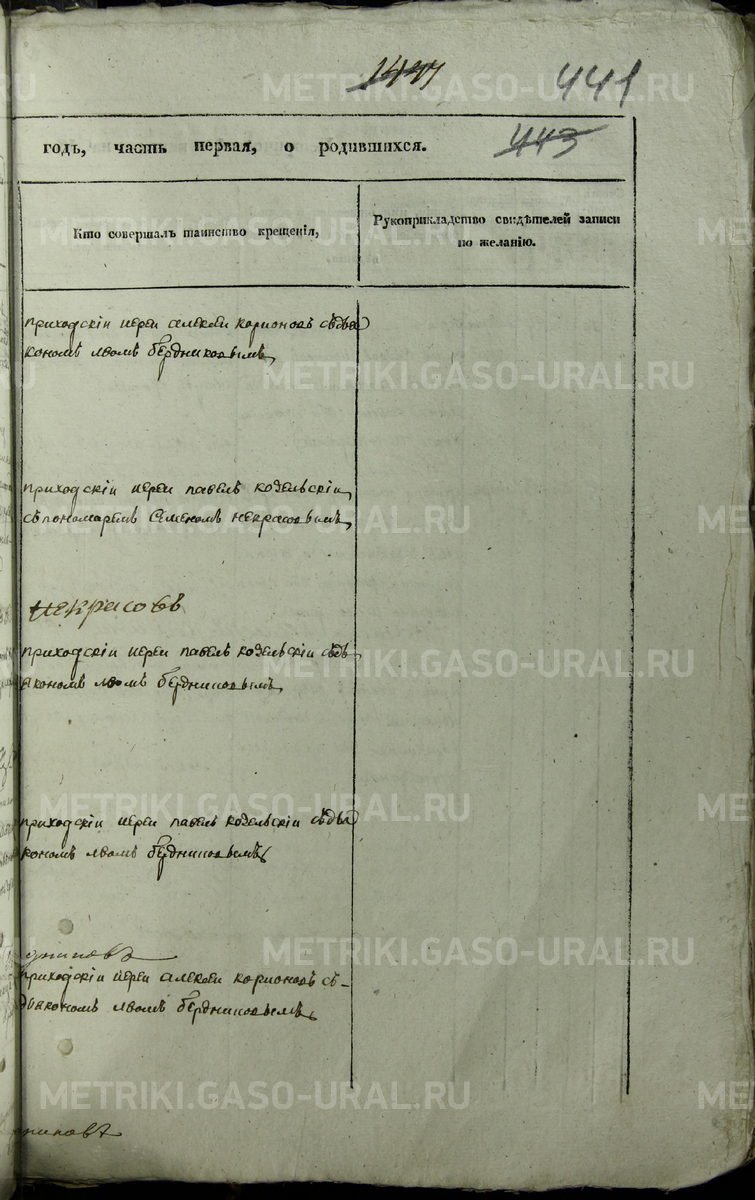 441
443
годъ, часть первая, о родившихся.
Кто совершалъ таинство крещенія,
Рукоприкладство свидѣтелей записи
по желанію.
приходскіи иереи алексѣи карионовъ съдья
кономъ лвомъ бердниковымъ
приходскіи иереи павелъ козельскіи
съпономаремъ семеномъ некрасовымъ
некрасовъ
приходскіи иереи павелъ козельскіи съдь
якономъ лвомъ бердниковымъ
приходскіи иереи павелъ козельскіи съдья
кономъ лвомъ бердниковымъ
приходскіи иереи алексѣи карионовъ съ-
дьякономъ лвомъ бердниковымъ
METRIKI.GASO-URAL.RU